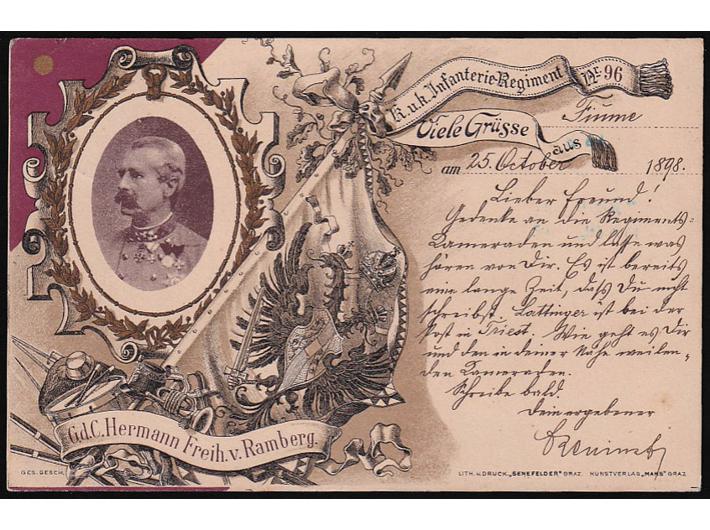 K.u.k. Infanterie-Regiment Nr. 96
Viele Grüsse aus
Fiume
am 25. October 1898.
Lieber Freund!
Gedenke an die Regiments-
kameraden und lasse was
hören von Dir. Es ist bereits
eine lange Zeit, daß Du nicht
schreibst. Lattinger ist bei der
Post in Triest. Wie geht es Dir
und den in deiner Nähe weilen-
den Kameraden.
Schreibe bald.
Dein ergebener
G.d.C. Hermann Freih. v. Ramberg.
GES. GESCH.
LITH. U. DRUCK „SENEFELDER" GRAZ. KUNSTVERLAG „MARS" GRAZ